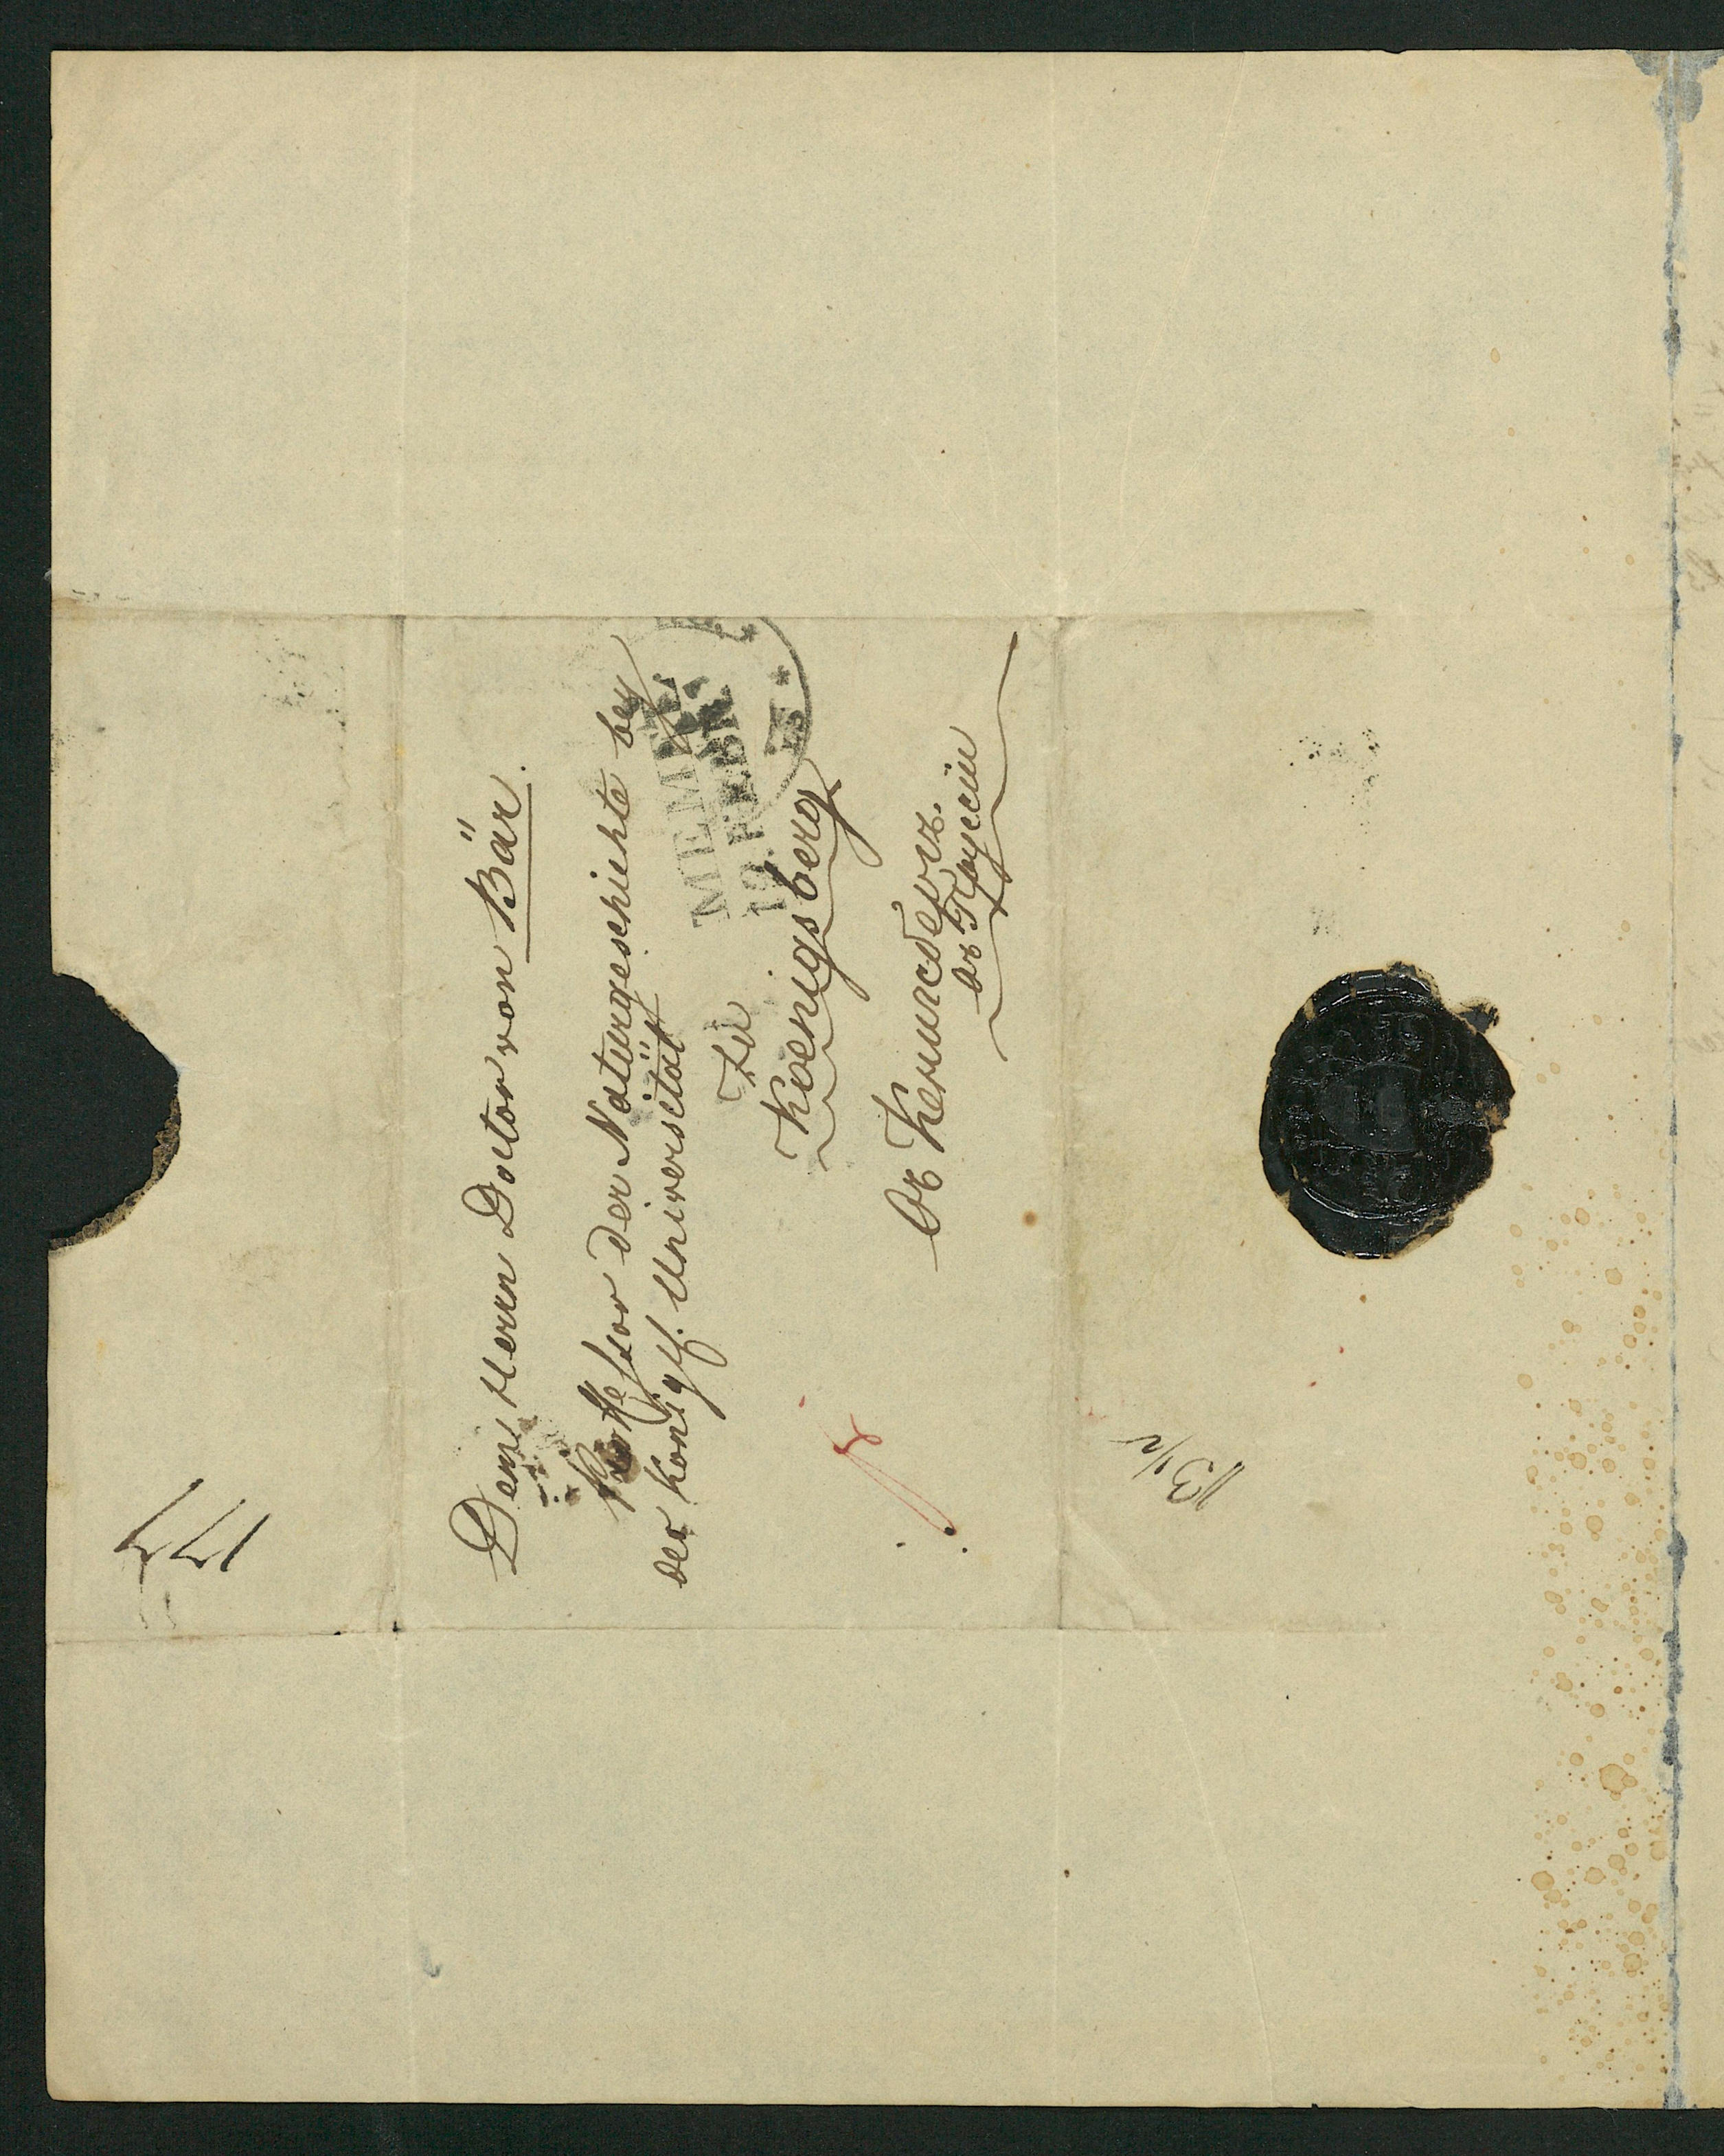 Dem Herrn Doctor von Bär.
Professor der Naturgeschichte bey
der königl. Universität
zu
Koenigsberg
MEMEL
12. FEBR.
Въ Кенигсбергъ.
въ Пруссіи
13 1/2